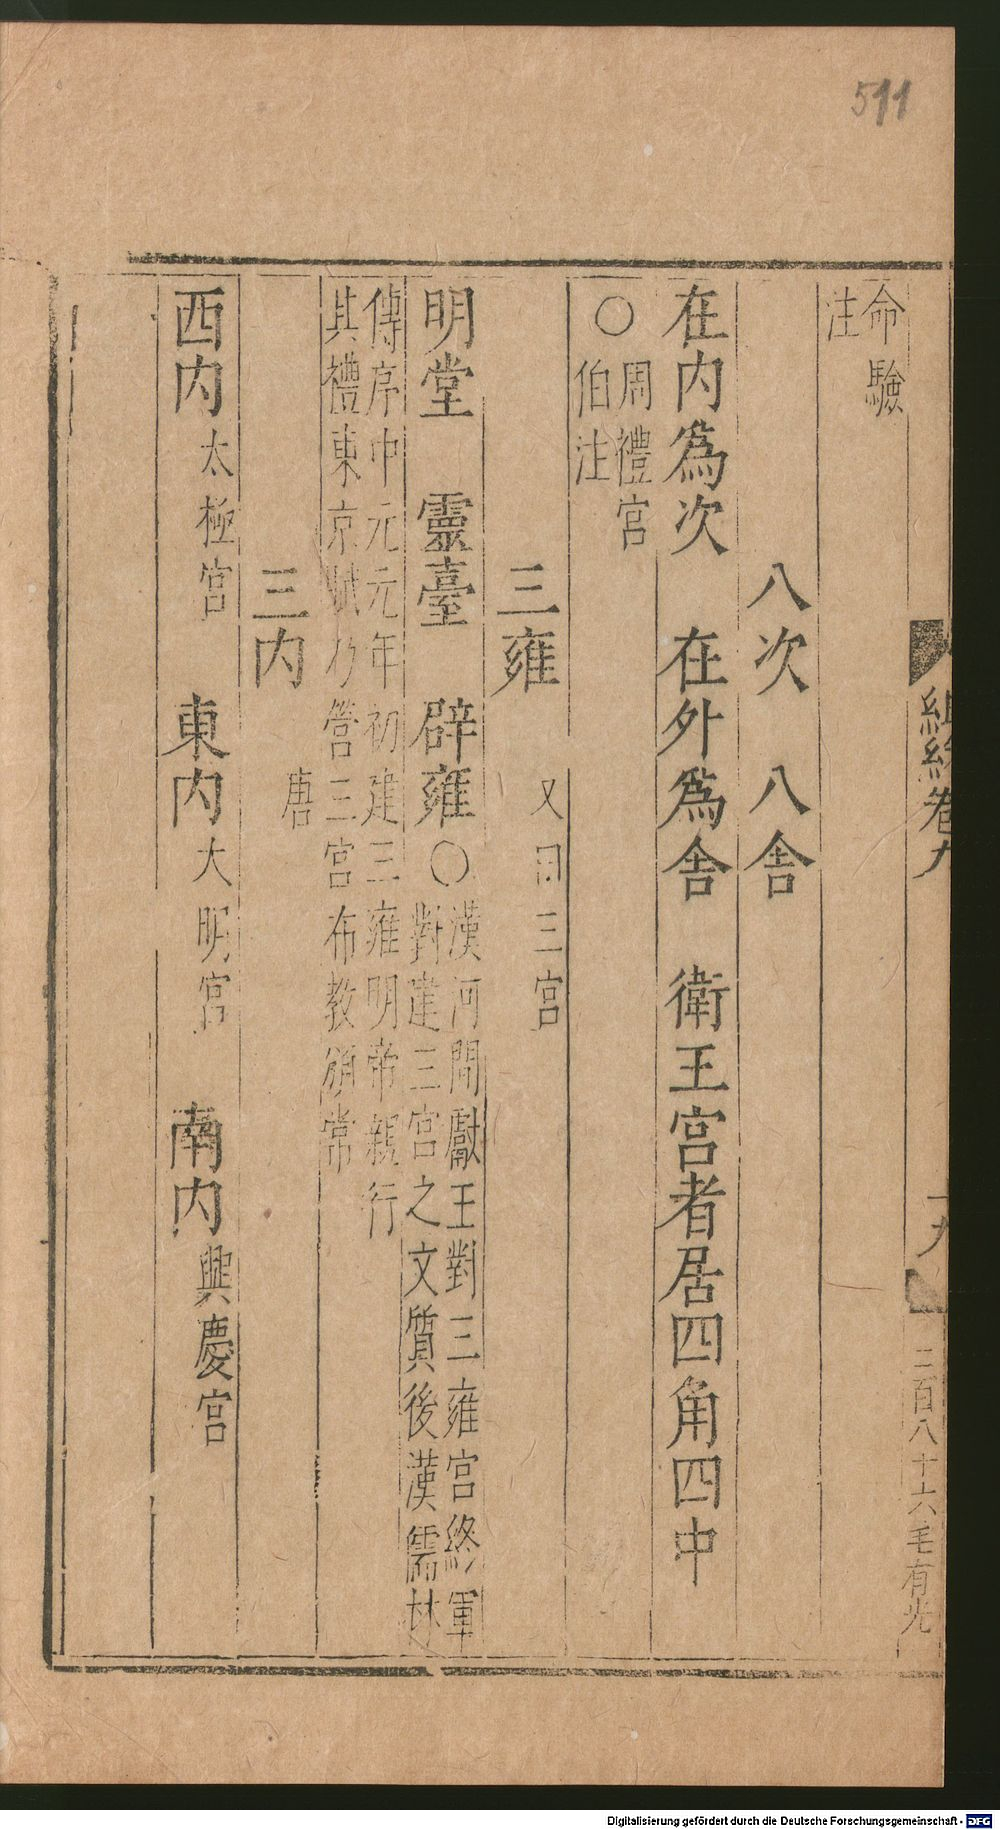 511
命驗
注
八次　八舍
在内爲次　在外爲舍　衛王宮者居四角四中
〇周禮宮
伯注
三雍　又曰三宮
明堂　靈臺　辟雍〇漢河間獻王對三雍宮終軍
對建三宮之文質後漢儒林
傳序中元元年初建三雍明帝親行
其禮東京賦乃營三宮布教頒常
三内　唐
西内太極宮　東内大明宮　南内興慶宮
卷九
十九
二百八十六毛有光
Digitalisierung gefördert durch die Deutsche Forschungsgemeinschaft - DFG